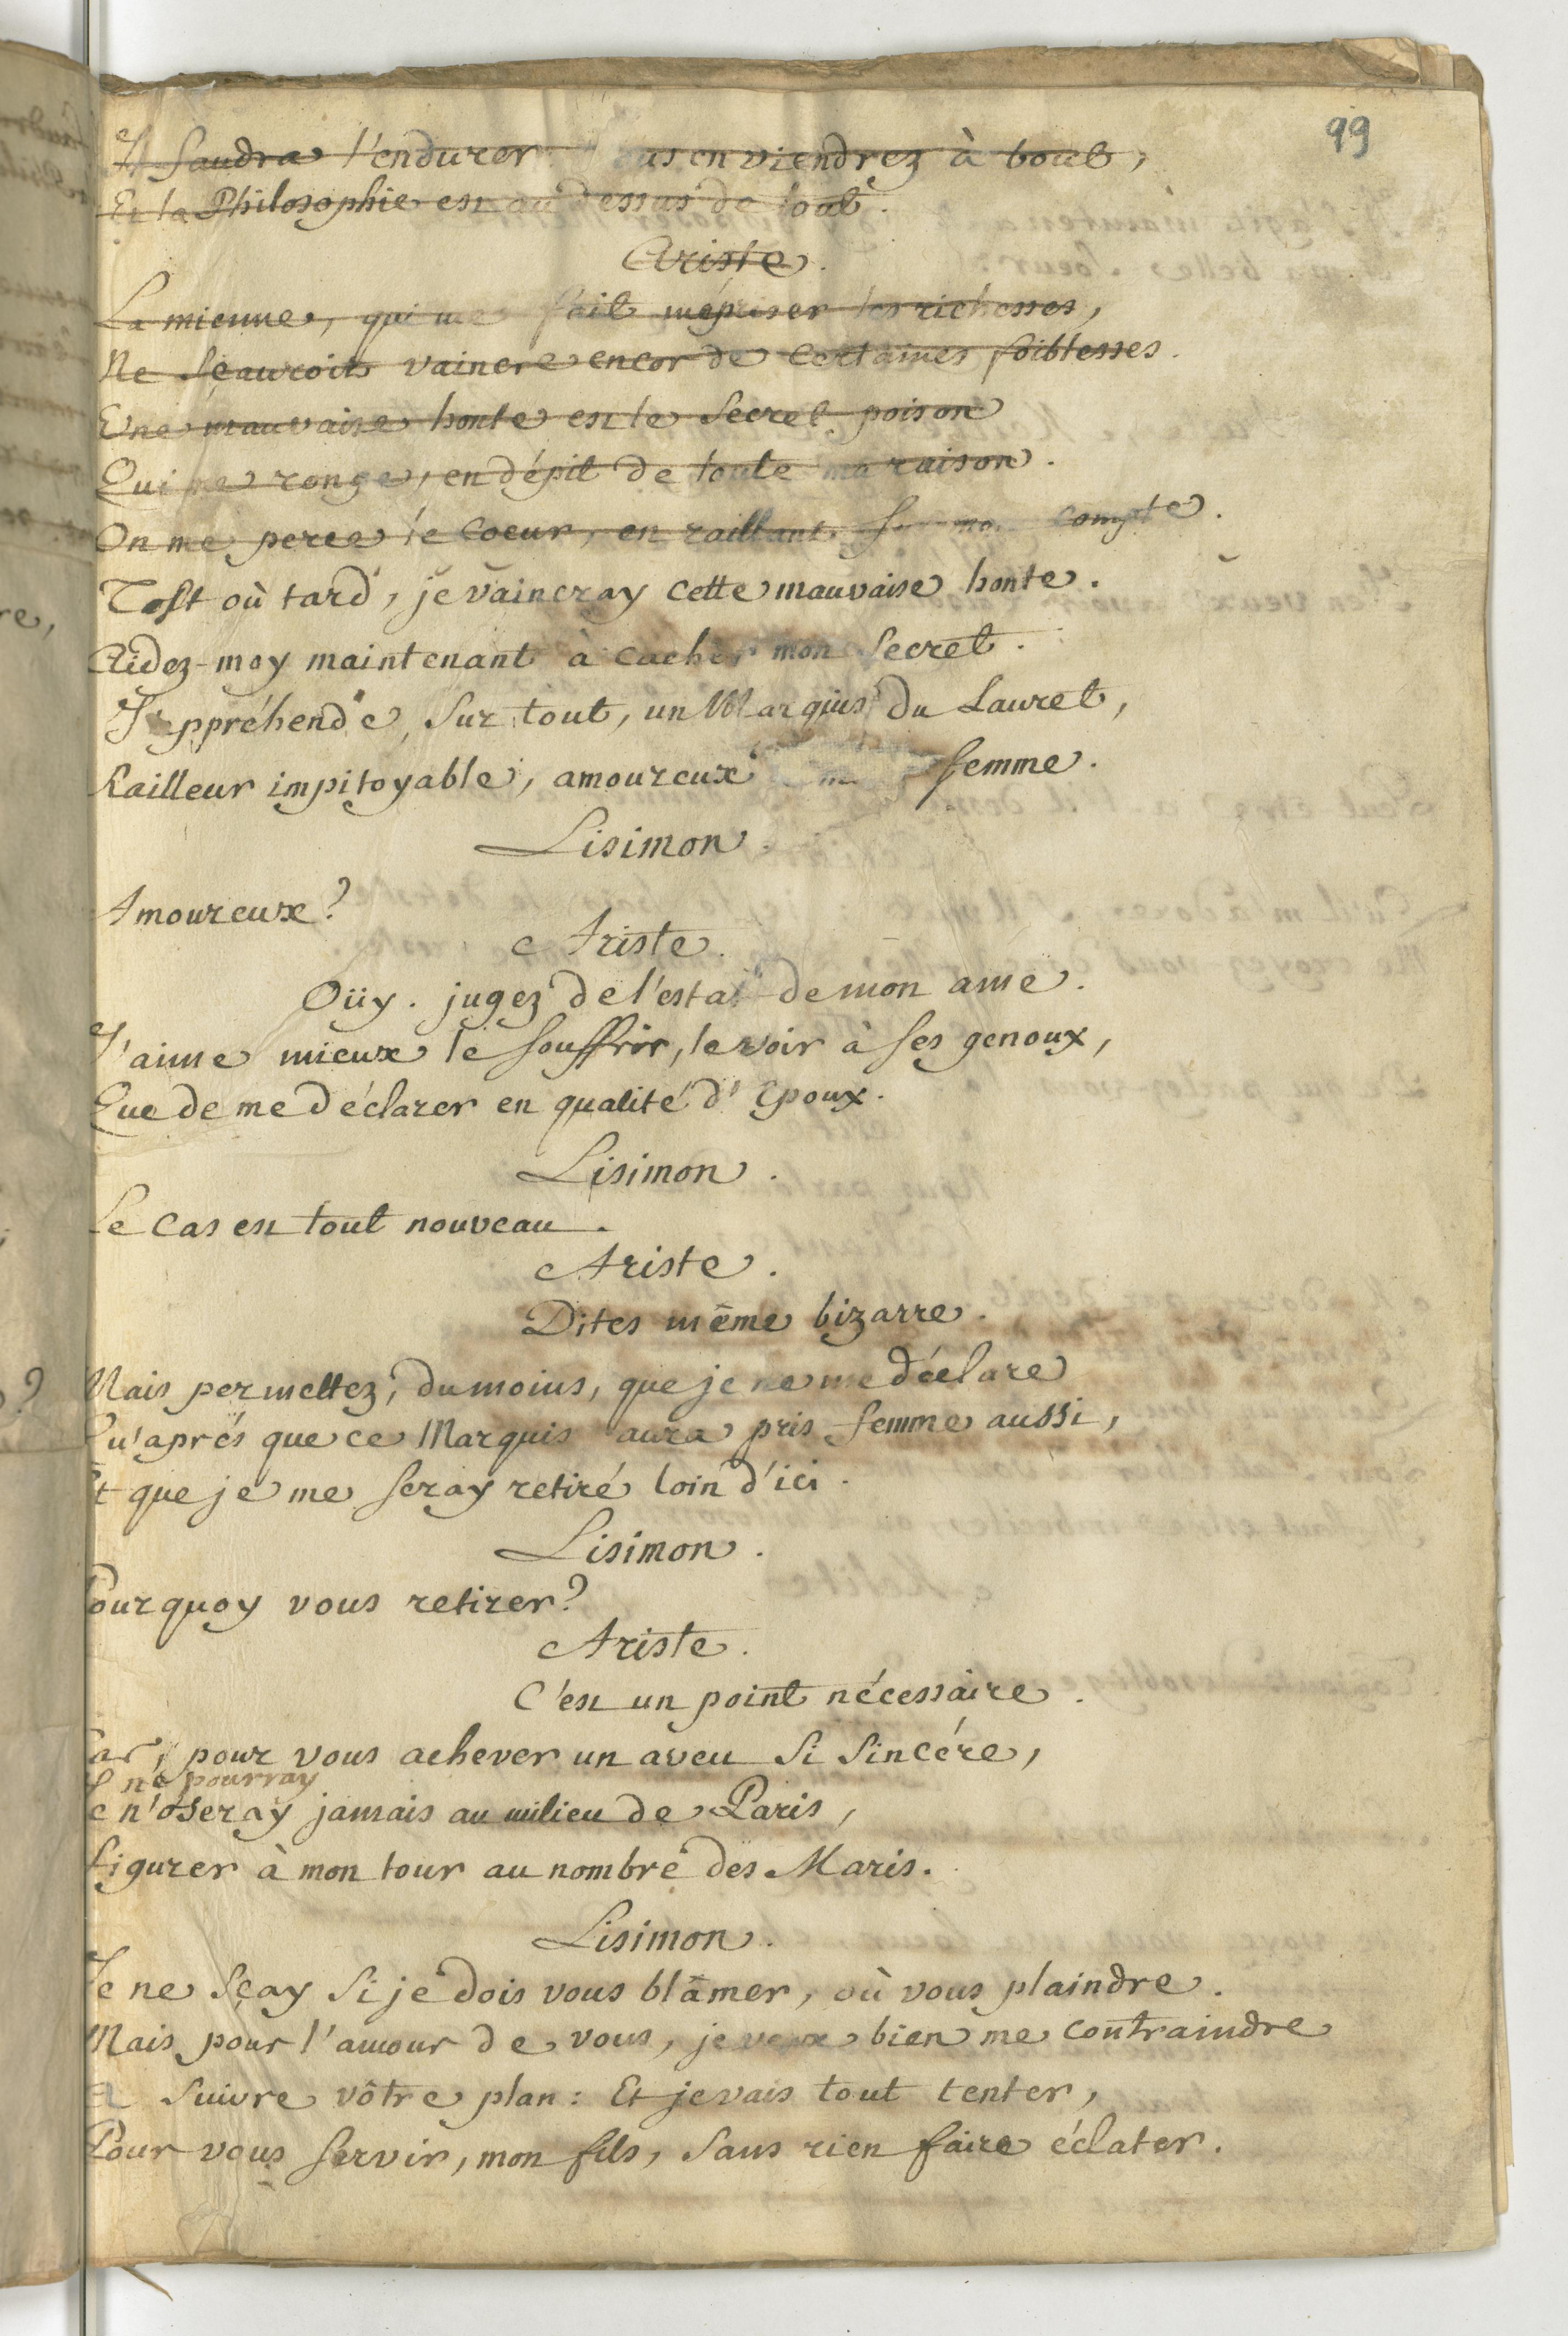 99
Il faudra l'endurer. vous en viendrez à bout,
Et la Philosophie est au dessus de tout.
Ariste.
La mienne, qui me fait mépriser les richesses,
Ne sçauroit vaincre encor de certaines foiblesses.
Une mauvaise honte est le secret poison
Qui me ronge, en dépit de toute ma raison.
On me perce le coeur, en raillant sur mon compte.
Tost où tard, je vaincray cette mauvaise honte.
Aidez-moy maintenant à cacher mon secret.
J'appréhende, sur tout, un Marquis du Lauret,
Railleur impitoyable, amoureux de ma femme.
Lisimon.
Amoureux?
Ariste.
Oüy. jugez de l'estat de mon ame.
J'aime mieux le souffrir, le voir à ses genoux,
Que de me déclarer en qualité d'Epoux.
Lisimon.
Le cas est tout nouveau.
Ariste.
Dites même bizarre.
Mais permettez, du moins, que je ne me déclare
Qu'aprés que ce Marquis aura pris femme aussi,
Et que je me seray retiré loin d'ici.
Lisimon.
Pourquoy vous retirer?
Ariste.
C'est un point nécessaire.
Car, pour vous achever un aveu si sincére,
ne pourray
Je n'oseray jamais au milieu de Paris,
figurer à mon tour au nombre des Maris.
Lisimon.
Je ne sçay si je dois vous blâmer, où vous plaindre.
Mais pour l'amour de vous, je veux bien me contraindre
Et suivre vôtre plan: Et je vais tout tenter,
Pour vous servir, mon fils, sans rien faire éclater.